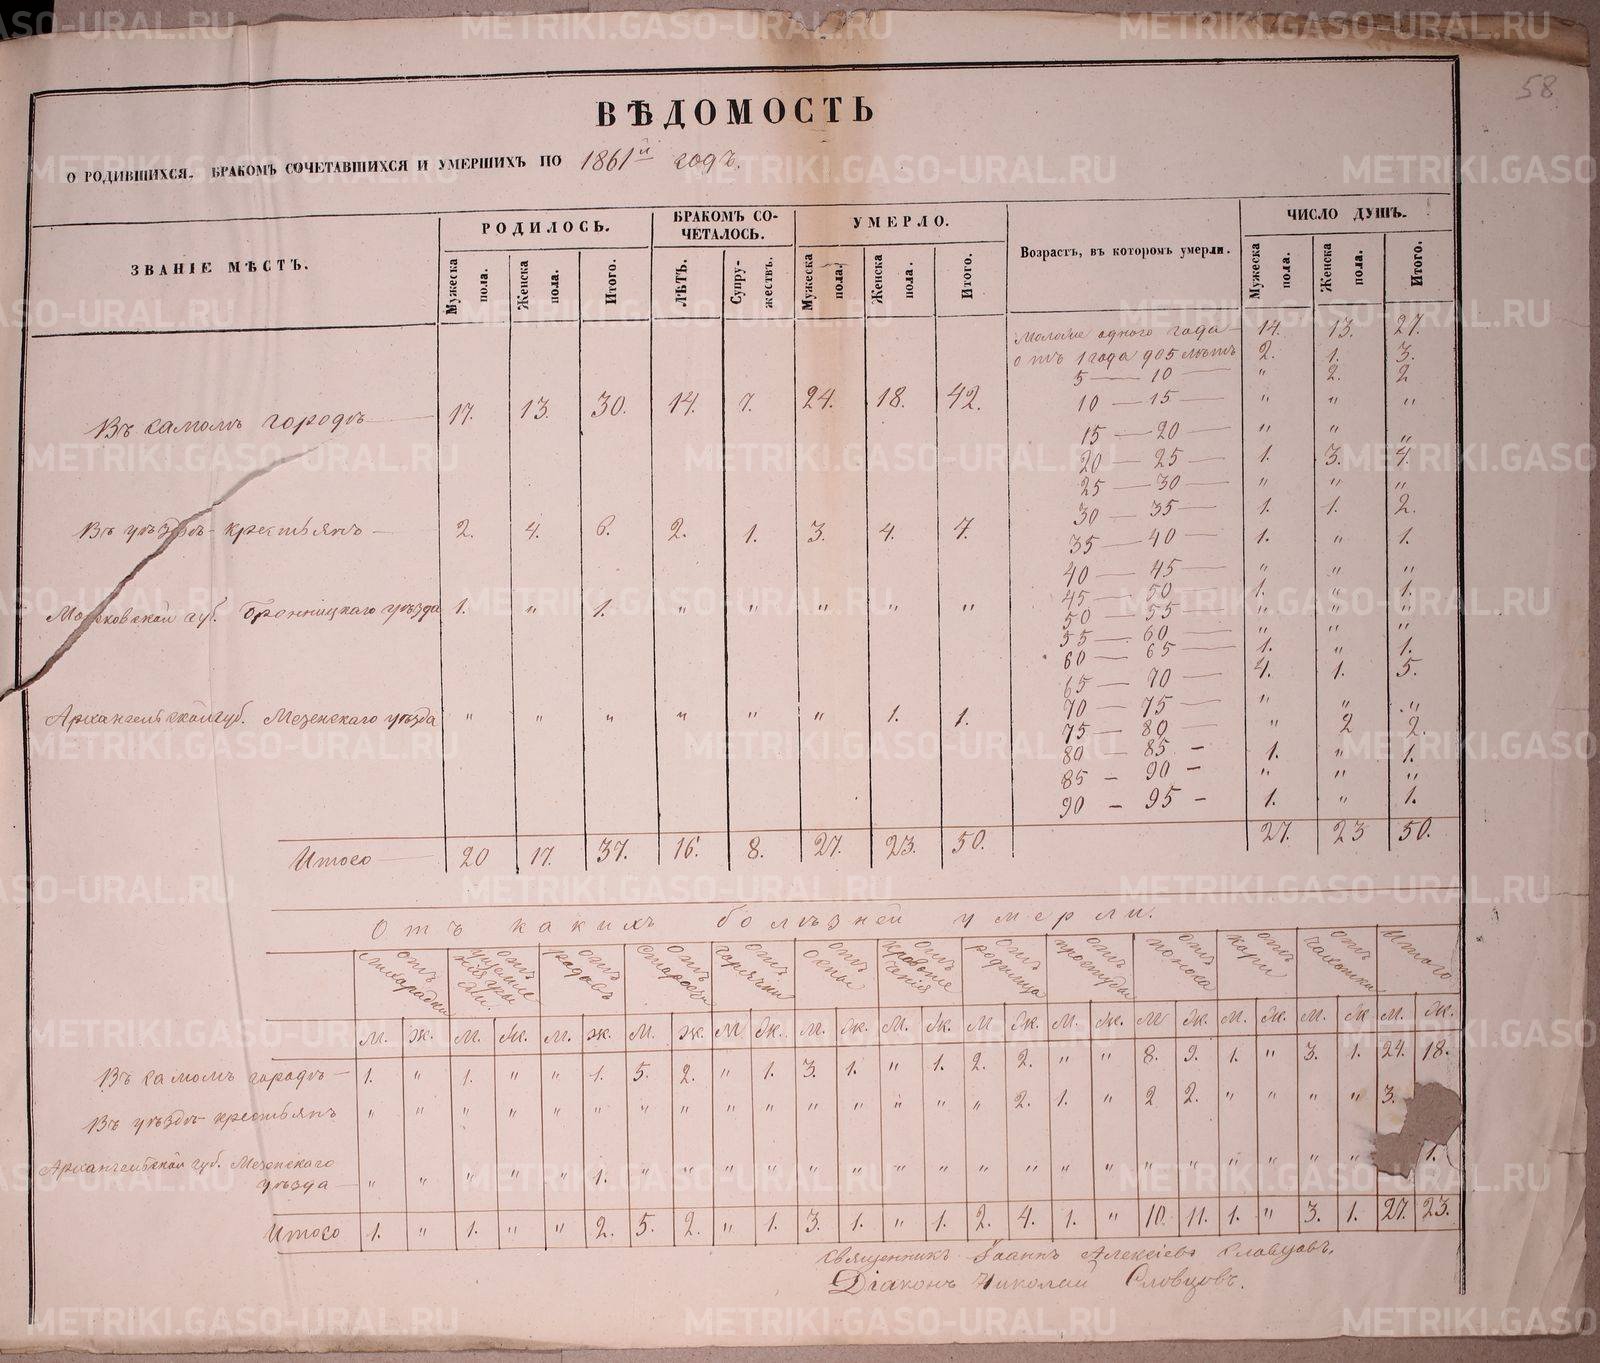 58
ВѢДОМОСТЬ
О РОДИВШИХСЯ, БРАКОМЪ СОЧЕТАВШИХСЯ И УМЕРШИХЪ ПО 1861й годъ.
ЗВАНІЕ МѢСТЪ. РОДИЛОСЬ. БРАКОМЪ СОЧЕТАЛОСЬ. УМЕРЛО. Возрастъ, въ которомъ умерли. ЧИСЛО ДУШЪ.
Мужеска пола. Женска пола. Итого. ЛѢТЪ. Супружествъ. Мужеска пола. Женска пола. Итого. Мужеска пола. Женска пола. Итого.
Въ самомъ городѣ — 17. 13. 30. 14. 7. 24. 18. 42.
Въ уѣздѣ крестьянъ — 2. 4. 6. 2. 1. 3. 4. 7.
Московской губ. Бронницкаго уѣзда 1. " 1. " " " " "
Архангельской губ. Мезенскаго уѣзда " " " " " " 1. 1.
Итого — 20 17. 37. 16. 8. 27. 23. 50.
Моложе одного года — 14. 13. 27.
отъ 1 года до 5 лѣтъ 2. 1. 3.
5 — 10 — " 2. 2
10 — 15 — " " "
15 — 20 — " " "
20 — 25 — 1. 3. 4.
25 — 30 — " " "
30 — 35 — 1. 1. 2.
35 — 40 — 1. " 1.
40 — 45 — " " "
45 — 50 — 1. " 1.
50 — 55 — " " "
55 — 60 — " " "
60 — 65 — 1. " 1.
65 — 70 — 4. 1. 5.
70 — 75 — " " "
75 — 80 — " 2 2.
80 — 85 - 1. " 1.
85 - 90 - " " "
90 - 95 - 1. " 1.
27. 23 50.
Отъ какихъ болѣзней умерли.
Отъ лихарадки Отъ родовъ Отъ старости Отъ горячки Отъ Оспы Отъ кровотеченія Отъ родимца Отъ простуды Отъ поноса Отъ кори Отъ чахотки Итого
М. Ж. М. Ж. М. Ж. М. Ж. М Ж. М. Ж. М. Ж. М Ж. М. Ж. М Ж. М. Ж. М. Ж М. Ж.
Въ самомъ городѣ — 1. " 1. " " 1. 5. 2. " 1. 3. 1. " 1. 2. 2. " " 8. 9. 1. " 3. 1. 24. 18.
Въ уѣздѣ крестьянъ " " " " " " " " " " " " " " " 2. 1. " 2 2. " " " " 3.
Архангельской губ. Мезенскаго
уѣзда — " " " " " 1. " " " " " " " " " " " " " " " " " " 1.
Итого 1. " 1. " " 2. 5. 2. " 1. 3. 1. " 1. 2. 4. 1. " 10. 11. 1. " 3. 1. 27. 23.
Священникъ Іоаннъ Алексіевъ Словцовъ.
Діаконъ Николай Словцовъ.
METRIKI.GASO-URAL.RU